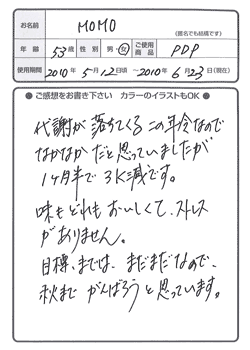 お名前 MOMO (匿名でも結構です)
年齢 53歳 性別 男・女 ご使用商品 PDP
使用期間 2010年5月12日頃〜2010年6月23日(現在)
● ご感想をお書き下さい カラーのイラストもOK ●
代謝が落ちてくるこの年令なので
なかなかだと思っていましたが
1ヶ月半で3K減です。
味もどれもおいしくて、ストレス
がありません。
目標までは、まだまだなので、
秋までがんばろうと思っています。